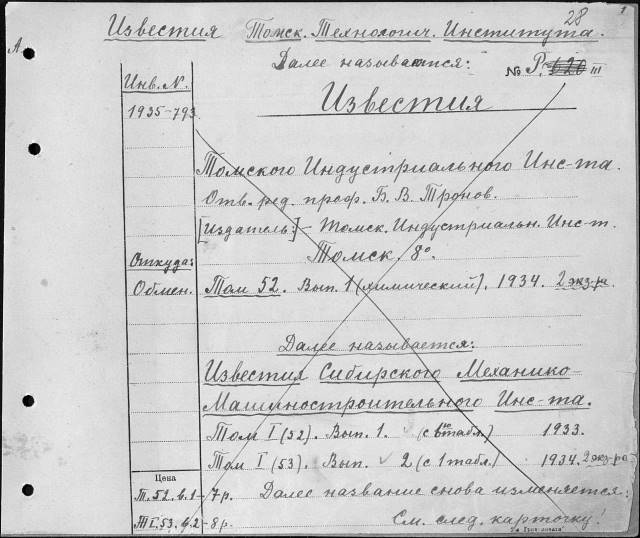 28
Известия Томск. Технологич. Института.
А
Далее называется: № Р. 620 III
Инв. N.
Известия
1935-793
Томского Индустриального Инс-та.
Отв. ред. проф. Б. В. Тронов.
[Издатель:] - Томск. Индустриальн. Инс-т.
Томск. 8°.
Откуда:
Обмен. Том 52. Вып. 1 (химический). 1934. 2 экз-ра
Далее называется:
Известия Сибирского Механико-
Машиностроительного Инс-та.
Том I (52). Вып. 1. (с 6ю табл.) 1933.
Том I (53). Вып. 2 (с 1 табл.) 1934. 2 экз-ра
Цена
Т. 52. в. 1 - 7 р. Далее название снова изменяется:
Т I. 53. в. 2 - 8 р. См. след. карточку!